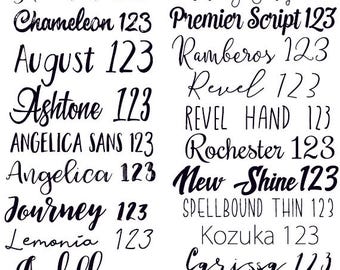 Chameleon 123
August 123
Ashtone 123
ANGELICA SANS 123
Angelica 123
Journey 123
Lemonia 123
Premier Script 123
Ramberos 123
Revel 123
REVEL HAND 123
Rochester 123
New Shine 123
SPELLBOUND THIN 123
Kozuka 123
Carissa 123